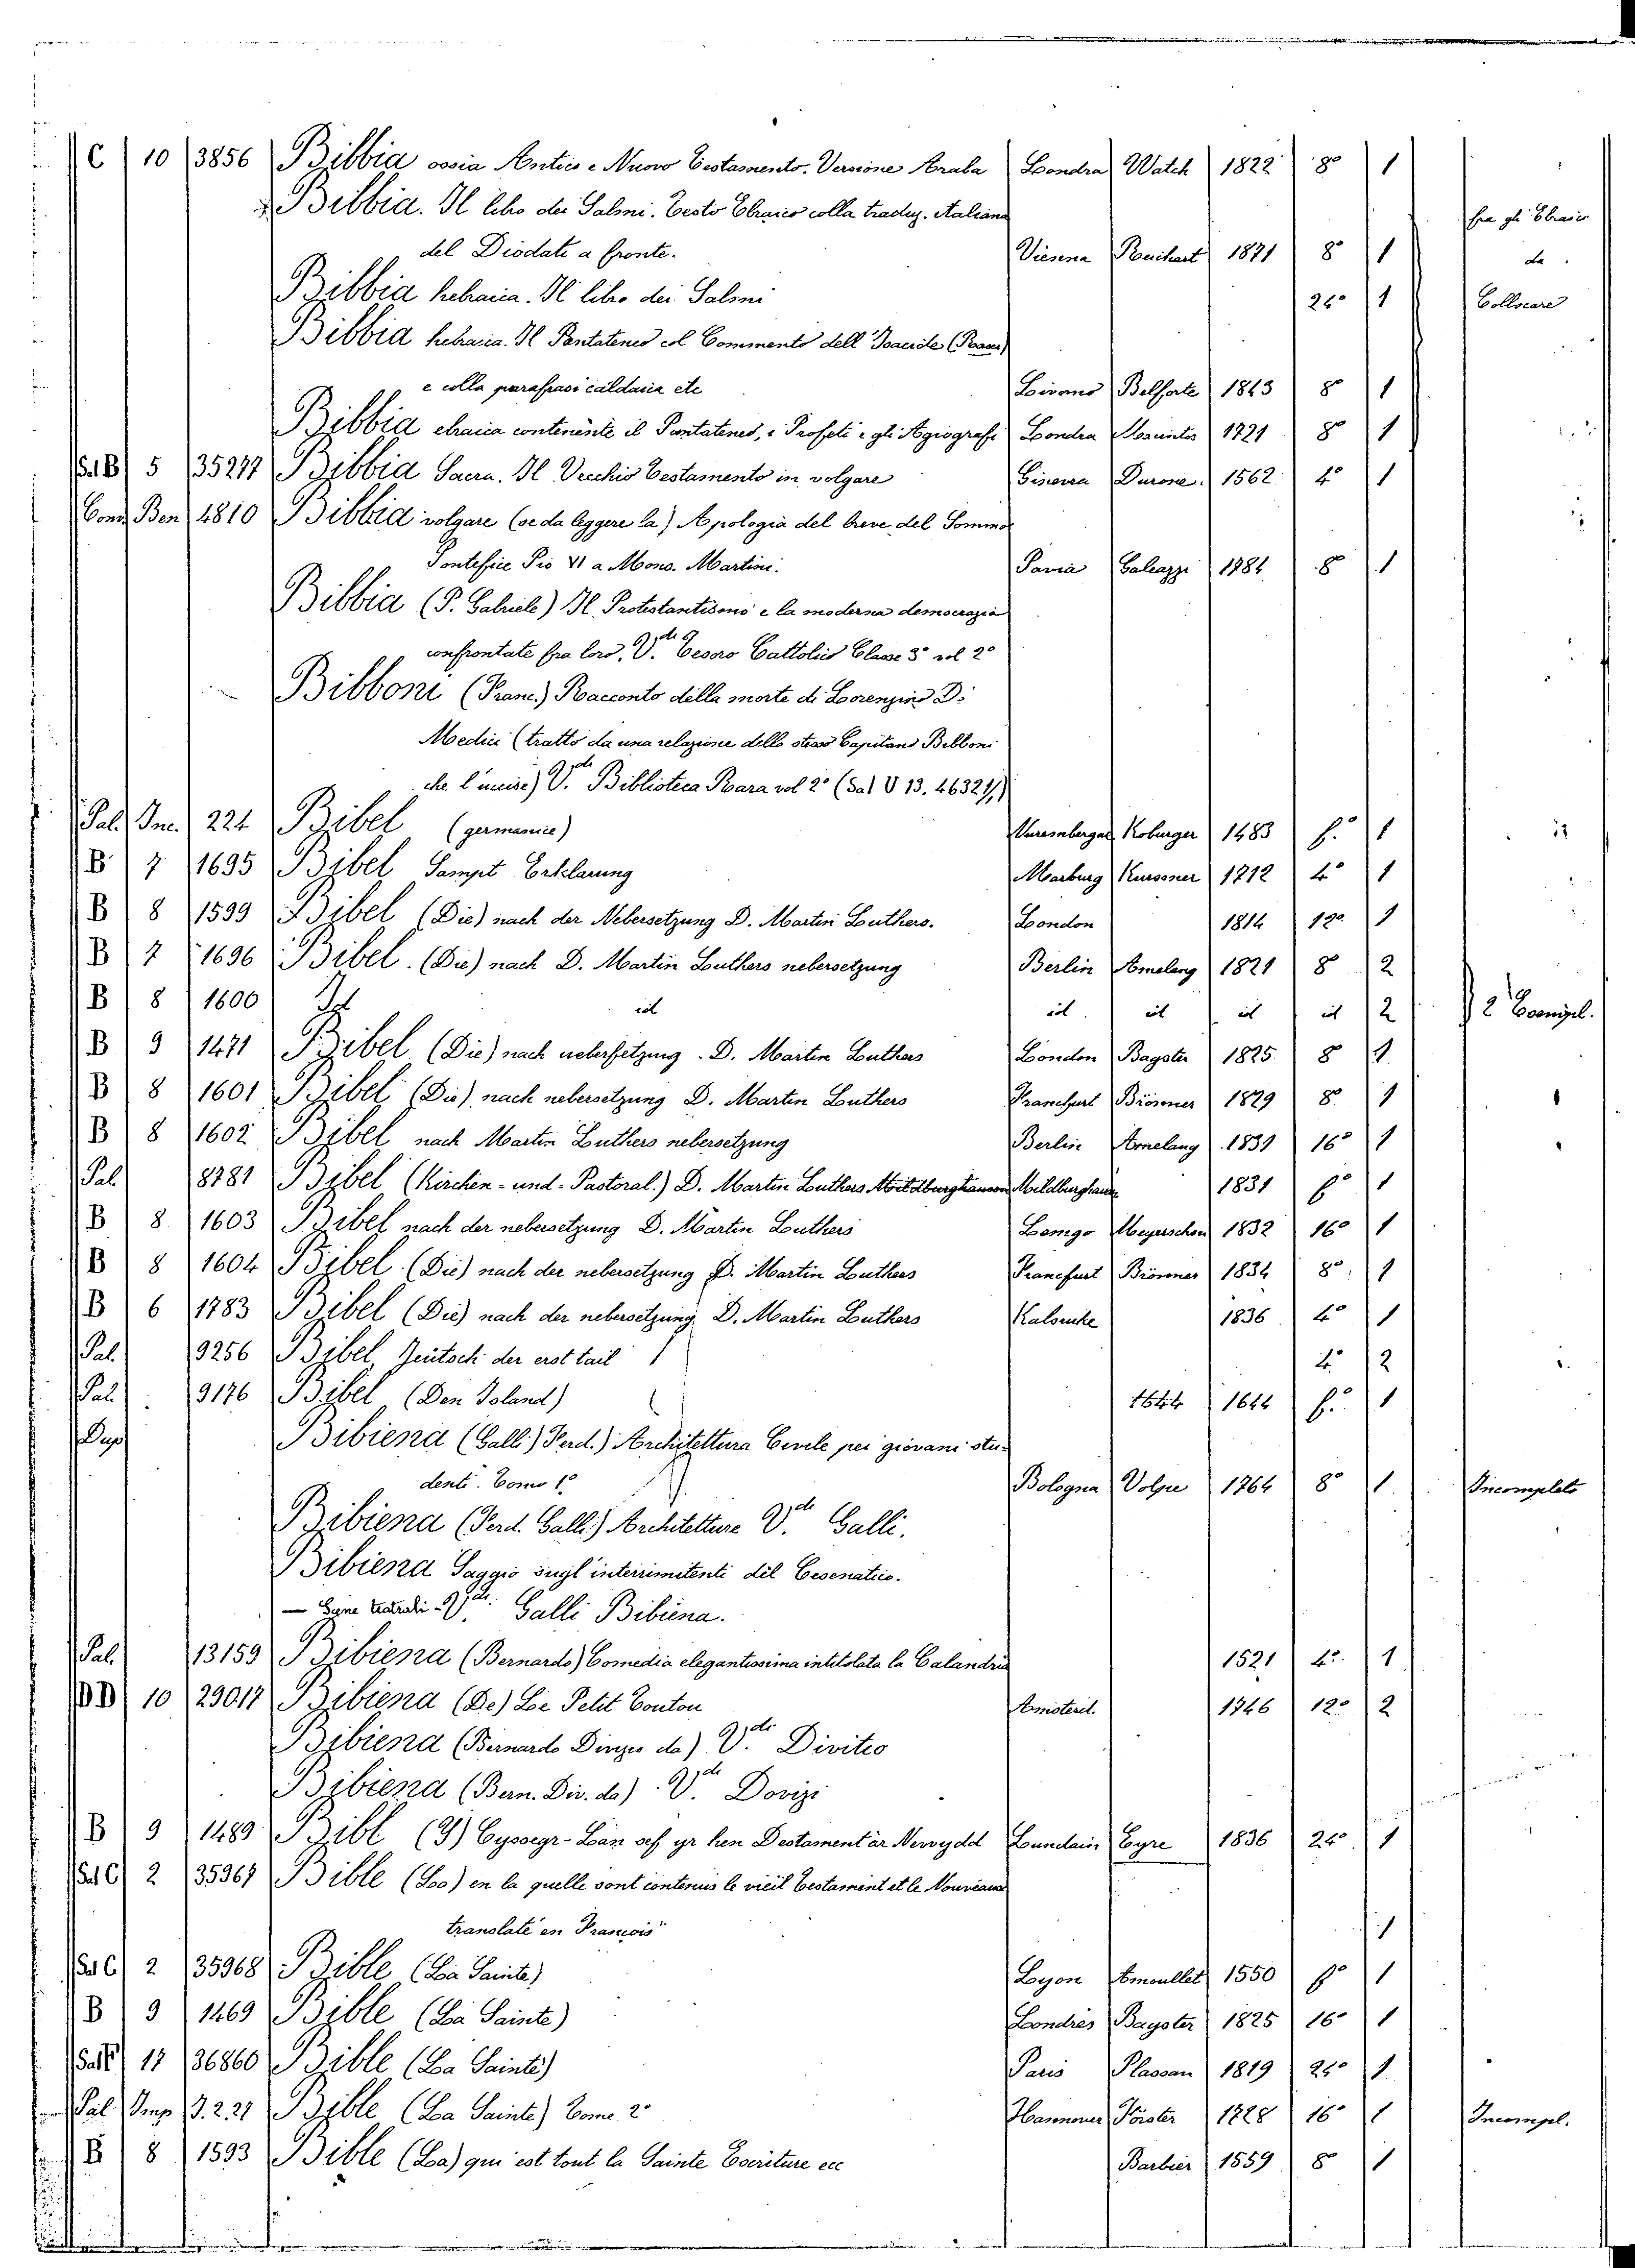 C 10 3856 Bibbia ossia Antico e Nuovo Testamento. Versione Araba Londra Watch 1822 8° 1
Bibbia. Il libro dei Salmi. Testo Ebraico colla traduz. Italiana fra gli Ebraici
del Diodati a fronte. Vienna 1871 8° 1 da
Bibbia hebraica. Il libro dei Salmi 24° 1 Collocare
Bibbia hebraica. Il Pentateuco col Commento dell
e colla parafrasi caldaica etc Livorno Belforte 1863 8° 1
Bibbia ebraica contenente il Pentateuco, i Profeti e gli Agiografi Londra 8° 1
5 35277 Bibbia Sacra. Il Vecchio Testamento in volgare Ginevra Durone. 1562 4° 1
Cons Ben 4810 Bibbia volgare (se da leggere la) Apologia del breve del Sommo
Pontefice Pio VI a Mons. Martini. Pavia Galeazzi 1784 8° 1
Bibbia (P. Gabriele) Il Protestantismo e la moderna democrazia
confrontate fra loro. Vedi Tesoro Cattolico Classe 3ª vol 2°
Bibboni (Franc.) Racconto della morte di Lorenzino D:
Medici (tratto da una relazione dello stesso Capitano Bibboni
che l'uccise) Vedi Biblioteca Rara vol 2° (Sal V 13. 46321/1)
Pal. Inc. 224 Bibel (germanice) Koburger 1483 f.° 1
B 7 1695 Bibel Sampt Erklarung Marburg Kursoner 1712 4° 1
B 8 1599 Bibel (Die) nach der Uebersetzung D. Martin Luthers. London 1814 12° 1
B 7 1696 Bibel. (Die) nach D. Martin Luthers uebersetzung Berlin Amelang 1821 8° 2
B 8 1600 Id id id id id id 2 2 Esempl.
B 9 1471 Bibel (Die) nach uebersetzung. D. Martin Luthers London Bagster 1825 8° 1
B 8 1601 Bibel (Die) nach uebersetzung D. Martin Luthers Francfurt Brönner 1829 8° 1
B 8 1602 Bibel nach Martin Luthers uebersetzung Berlin Amelang 1831 16° 1
Pal. 8781 Bibel (Kirchen-und-Pastoral.) D. Martin Luthers Mildburghausen Mildburghausen 1831 f° 1
B. 8 1603 Bibel nach der uebersetzung D. Martin Luthers Lemgo Meyerschen 1832 16° 1
B 8 1604 Bibel (Die) nach der uebersetzung D. Martin Luthers Francfurt Brönner 1834 8° 1
B 6 1783 Bibel (Die) nach der uebersetzung D. Martin Luthers Kalsruhe 1836 4° 1
Pal. 9256 Bibel Teütsch der erst tail 4° 2
Pal. 9176 Bibel (Den Toland) 1644 1644 f.° 1
Dup Bibiena (Galli) Ferd.) Architettura Civile pei giovani stu-
denti. Tomo 1° Bologna Volpe 1764 8° 1 Incompleto
Bibiena (Ferd. Galli) Architetture Vedi Galli.
Bibiena Saggio sugl'interrimitenti del Cesenatico.
— Scene teatrali - Vedi. Galli Bibiena.
Pal. 13159 Bibiena (Bernardo) Comedia elegantissima intitolata la Calandria 1521 4°. 1
10 29017 Bibiena (De) Le Petit Touton Amsterd. 1746 12° 2
Bibiena (Bernardo Divizio da) Vedi Divitio
Bibiena (Bern. Div. da). Vedi Dovizi
B 9 1489 Bibl (Y) Cyssegr-Lan sef yr hen Destament ar Newydd Lundain Eyre 1836 24° 1
Sal C 2 35367 Bible (La) en la quelle sont contenus le vieil Testament et le Nouveau
translaté en Francois 1
Sal C 2 35368 Bible (La Sainte) Lyon 1550 f° 1
B 9 1469 Bible (La Sainte) Londres Bagster 1825 16° 1
17 36860 Bible (La Sainte) Paris Plassan 1819 24° 1
Pal. Imp B. 2. 27 Bible (La Sainte) Tome 2° Hannover Förster 1728 16° 1 Incompl.
B 8 1593 Bible (La) qui est tout la Sainte Escriture ecc Barbier 1559 8° 1